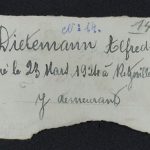 N° 14.
14
Dietemann Alfred
né le 23 Mars 1926 à
y demeurant